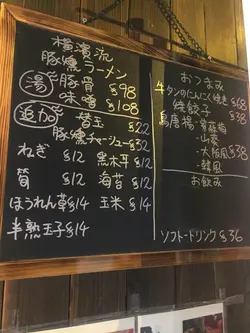 横濱流
豚燻ラーメン
湯 豚骨 $98
味噌 $108
追加 替玉 $22
豚燻チャーシュー $32
ねぎ $12 黒木耳 $12
筍 $12 海苔 $12
ほうれん草 $14 玉米 $14
半熟玉子 $14
おつまみ
牛タンのにんにく焼き $68
焼餃子 $38
鳥唐揚・常蘇梅 $38
・山葵
・大阪風
・韓風
お飲み
ソフトドリンク $36